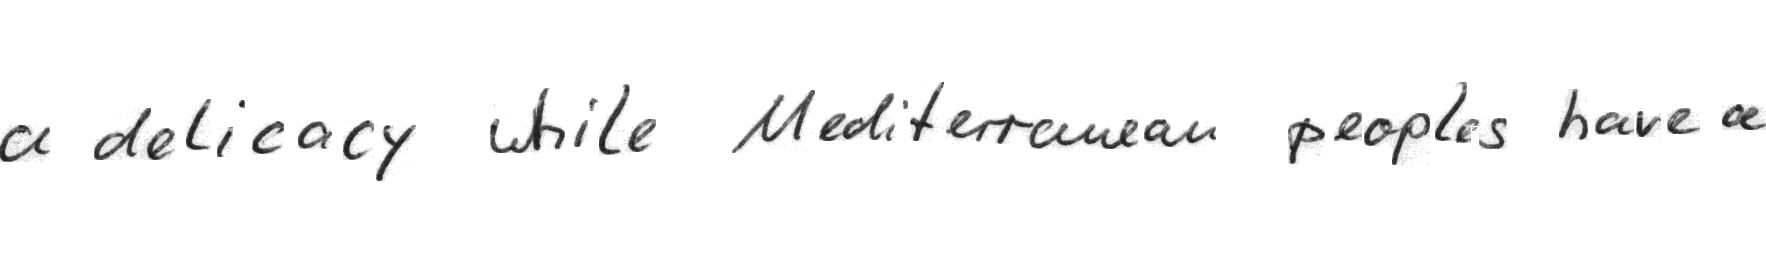 a delicacy while Mediterranean peoples have a